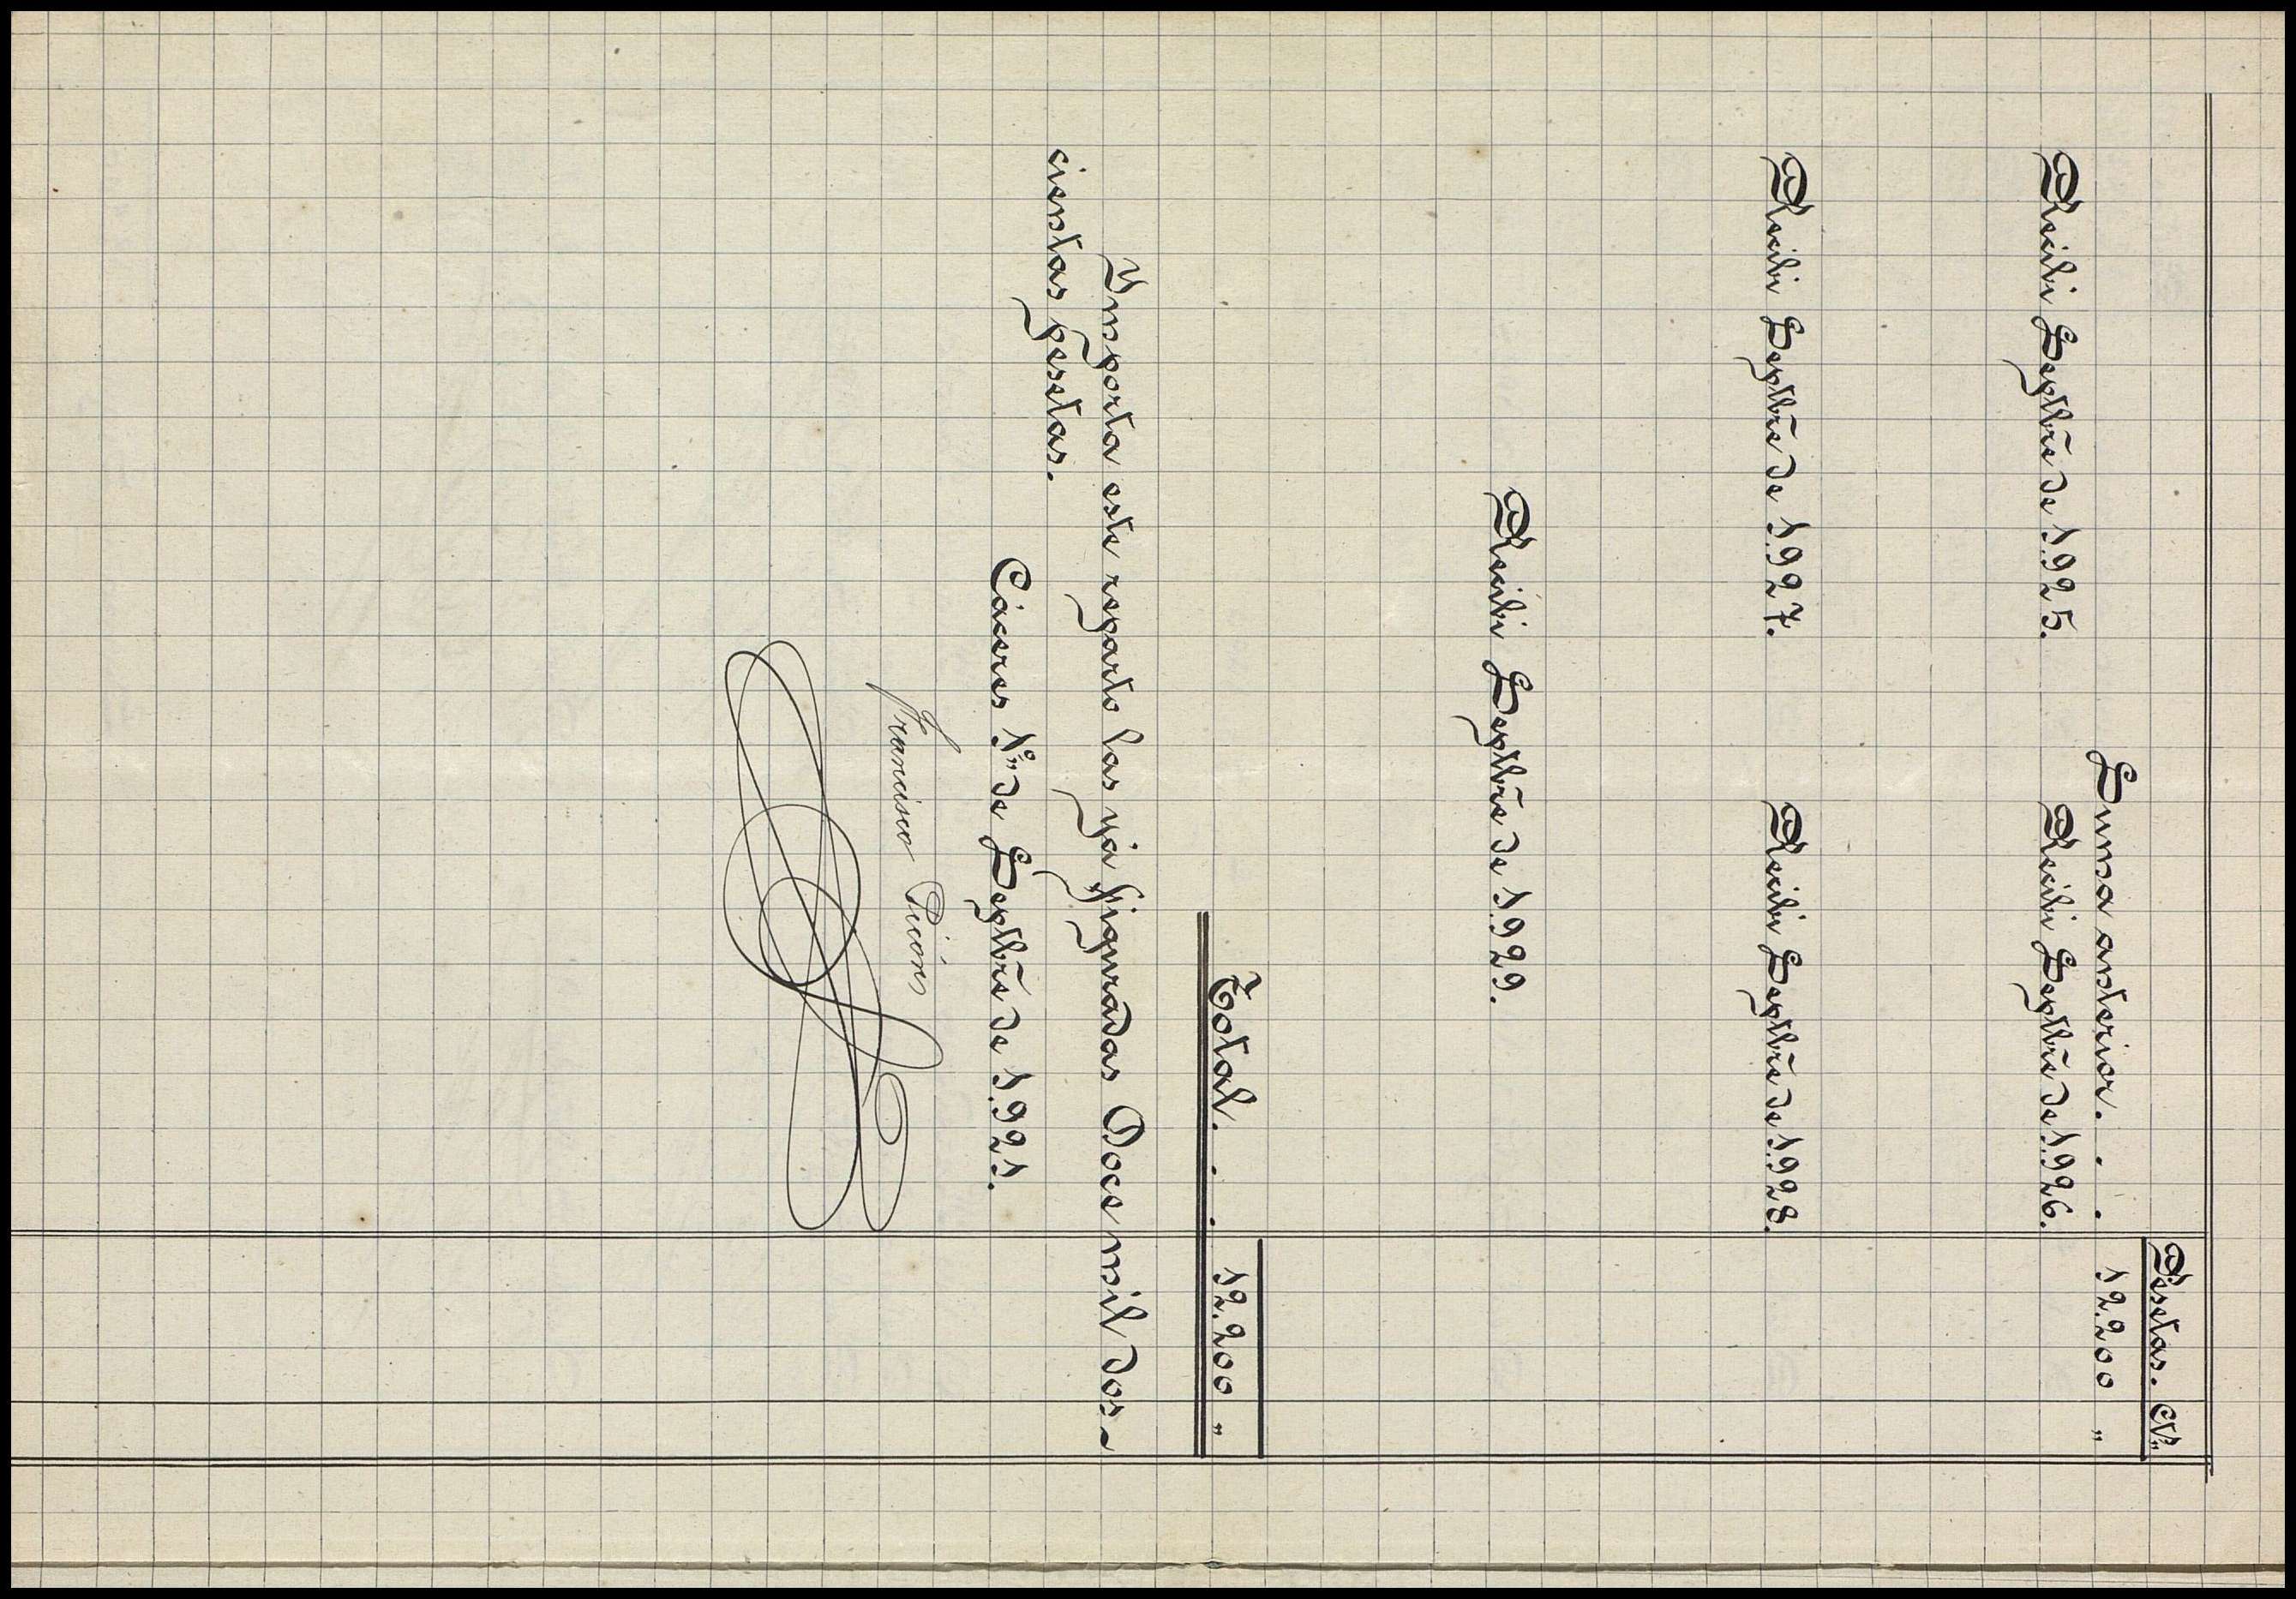 Pesetas. Cts.
Suma anterior. . . 12.200 "
Recibí Septbre de 1.925. Recibí Septbre de 1.926.
Recibí Septbre de 1.927. Recibí Septbre de 1.928.
Recibí Septbre de 1.929.
Total. . . 12.200 "
Importa este reparto las yá figuradas Doce mil dos-
cientas pesetas.
Cáceres 1º de Septbre de 1.921.
Francisco Picón